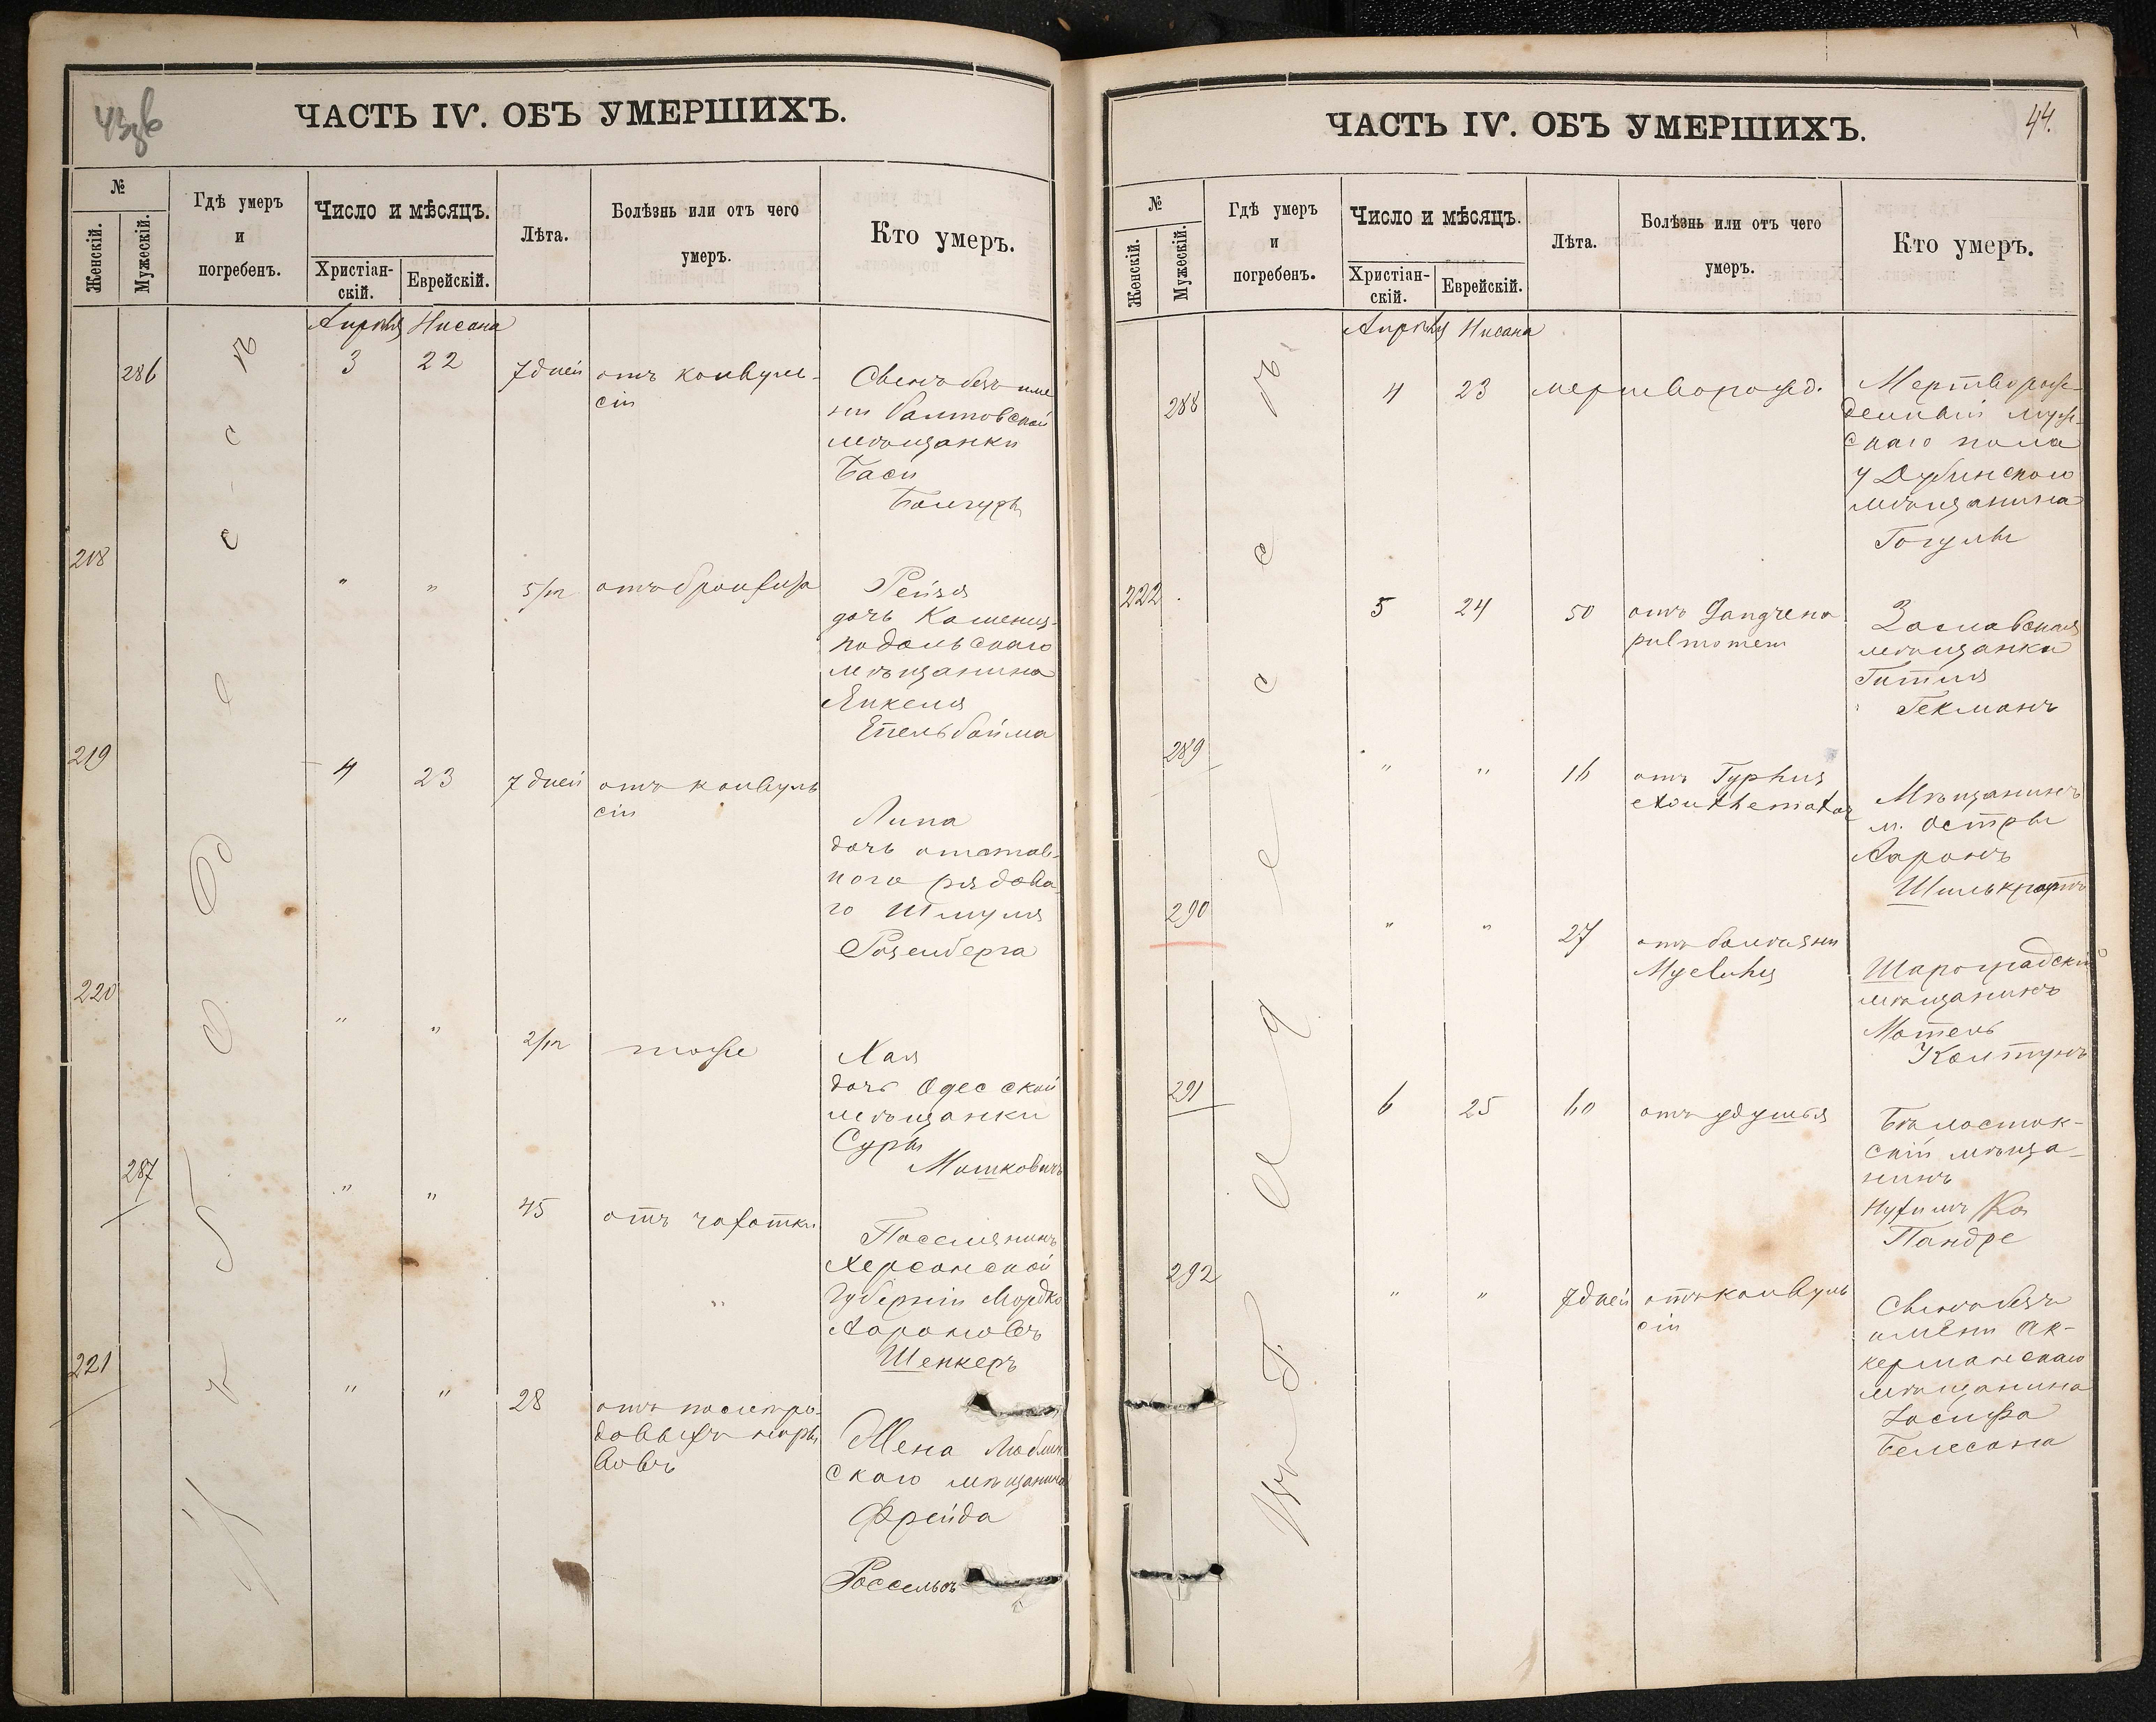 ЧАСТЬ IV. ОБЪ УМЕРШИХЪ.
№
Женскій.
Мужескій.
Гдѣ умеръ
и
погребенъ.
Число и мѣсяцъ.
Христіан-
скій.
Еврейскій.
Лѣта.
Болѣзнь или отъ чего
умеръ.
Кто умеръ.
Апрѣля Нисана
286
3
22
7 дней
отъ конвуль-
сіи
Сынъ безъ име
ни Балтовской
мѣщанки
Баси
218
"
"
5/12
отъ бронхита
Рейзя
дочь Каменец-
подольскаго
мѣщанина
Янкеля
Епельбойма
219
4
23
7 дней
отъ конвуль
сіи
Липа
дочь отстав-
ного рядова
го Шмуля
Розенберга
220
"
"
2/12
тоже
Хая
дочь Одесской
мѣщанки
Суры
Мошковичъ
287
"
"
45
отъ чахотки
Поселянинъ
Херсонской
Губерніи Мордко
Ароновъ
Шенкеръ
221
"
"
28
отъ послѣро-
довыхъ
Жена Люблин
скаго мѣщанина
Фрейда
ЧАСТЬ IV. ОБЪ УМЕРШИХЪ.
44.
№
Женскій.
Мужескій.
Гдѣ умеръ
и
погребенъ.
Число и мѣсяцъ.
Христіан-
скій.
Еврейскій.
Лѣта.
Болѣзнь или отъ чего
умеръ.
Кто умеръ.
Апрѣля Нисана
288
4
23
мертворожд.
Мертворож-
денный муж-
скаго пола
у Дубинского
мѣщанина
Гогулы
222
5
24
50
отъ Gangrena
pulmonem
Заславская
мѣщанка
Гитля
Гекманъ
289
"
"
16
отъ Typhus
exanthematus
Мѣщанинъ
м. Остры
Ааронъ
Шилькротъ
290
"
"
27
отъ болѣзни
Шароградскій
мѣщанинъ
Мотель
Колтунъ
291
6
25
60
отъ удушья
Бѣлосток-
скій мѣща-
нинъ
Нухимъ
Пандре
292
"
"
7 дней
отъ конвуль
сіи
Сынъ безъ
имени Ак-
керманскаго
мѣщанина
Іосифа
Белесона